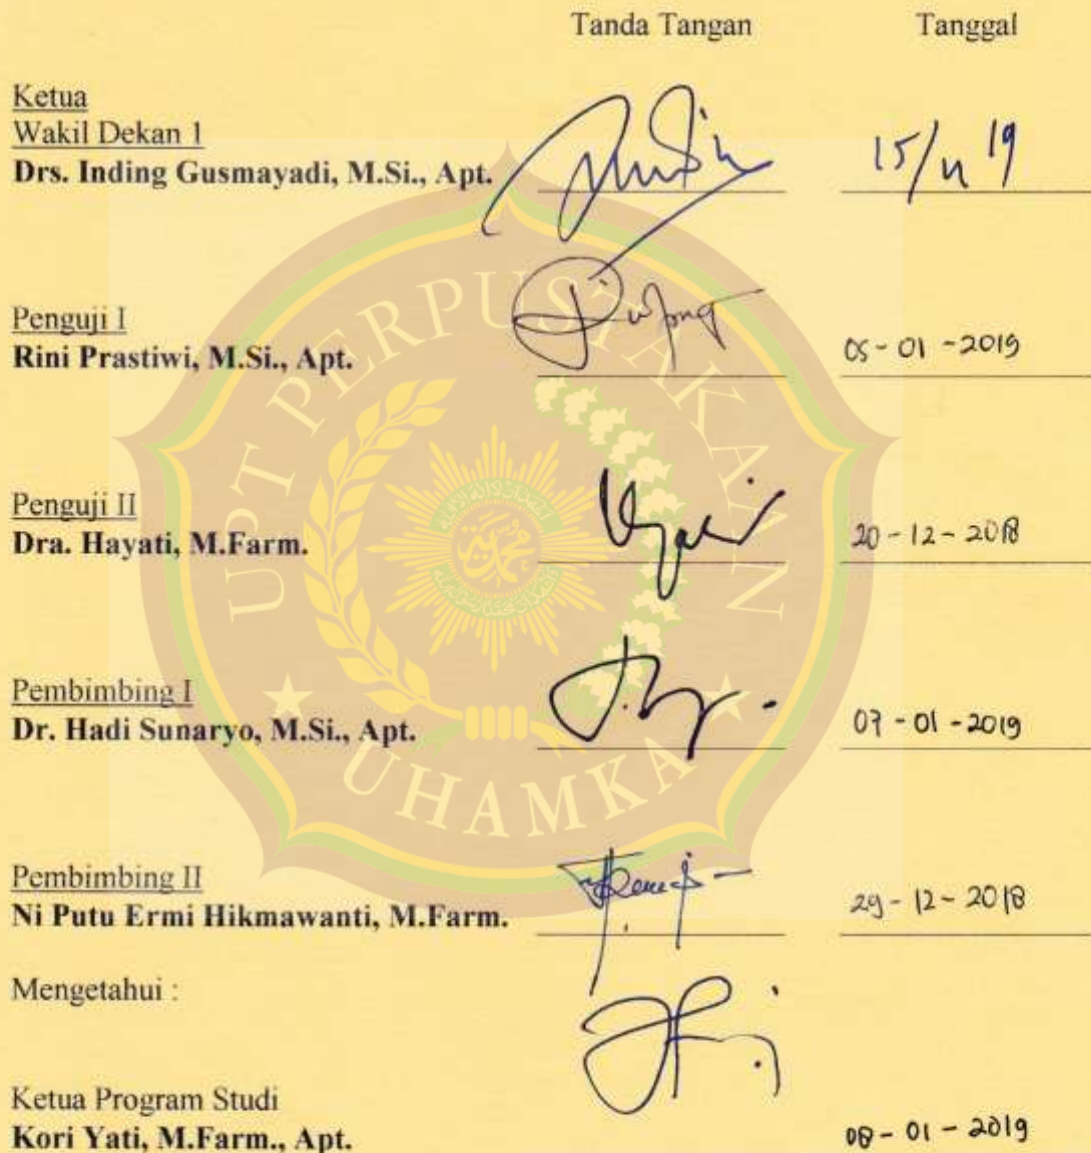 Tanda Tangan Tanggal
Ketua
Wakil Dekan 1
Drs. Inding Gusmayadi, M.Si., Apt. 15/ 19
Penguji I
Rini Prastiwi, M.Si., Apt. 05-01-2019
Penguji II
Dra. Hayati, M.Farm. 20-12-2018
Pembimbing I
Dr. Hadi Sunaryo, M.Si., Apt. 07-01-2019
Pembimbing II
Ni Putu Ermi Hikmawanti, M.Farm. 29-12-2018
Mengetahui :
Ketua Program Studi
Kori Yati, M.Farm., Apt. 08-01-2019
UPT PERPUSTAKAAN
UHAMKA